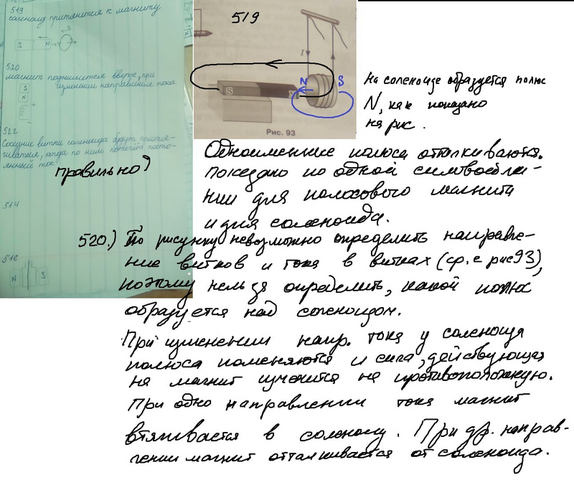 519
соленоид притянется к магниту
520
магнит поднимется вверх, при
изменении направления тока
S
N
522
Соседние витки соленоида будут притяги-
ваться, когда по ним потечёт посто-
янный ток
правильно?
514
516
519
I
S
N
S
Рис. 93
На соленоиде образуется полюс
N, как показано
на рис.
Одноименные полюса отталкиваются.
показано по одной силовой ли-
нии для полосового магнита
и для соленоида.
520.) По рисунку невозможно определить направле-
ние витков и тока в витках (ср. с рис 93),
поэтому нельзя определить, какой полюс
образуется над соленоидом.
При изменении напр. тока у соленоида
полюса поменяются и сила, действующая
на магнит изменится на противоположную.
При одно направлении тока магнит
втягивается в соленоид. При др. направ-
лении магнит отталкивается от соленоида.